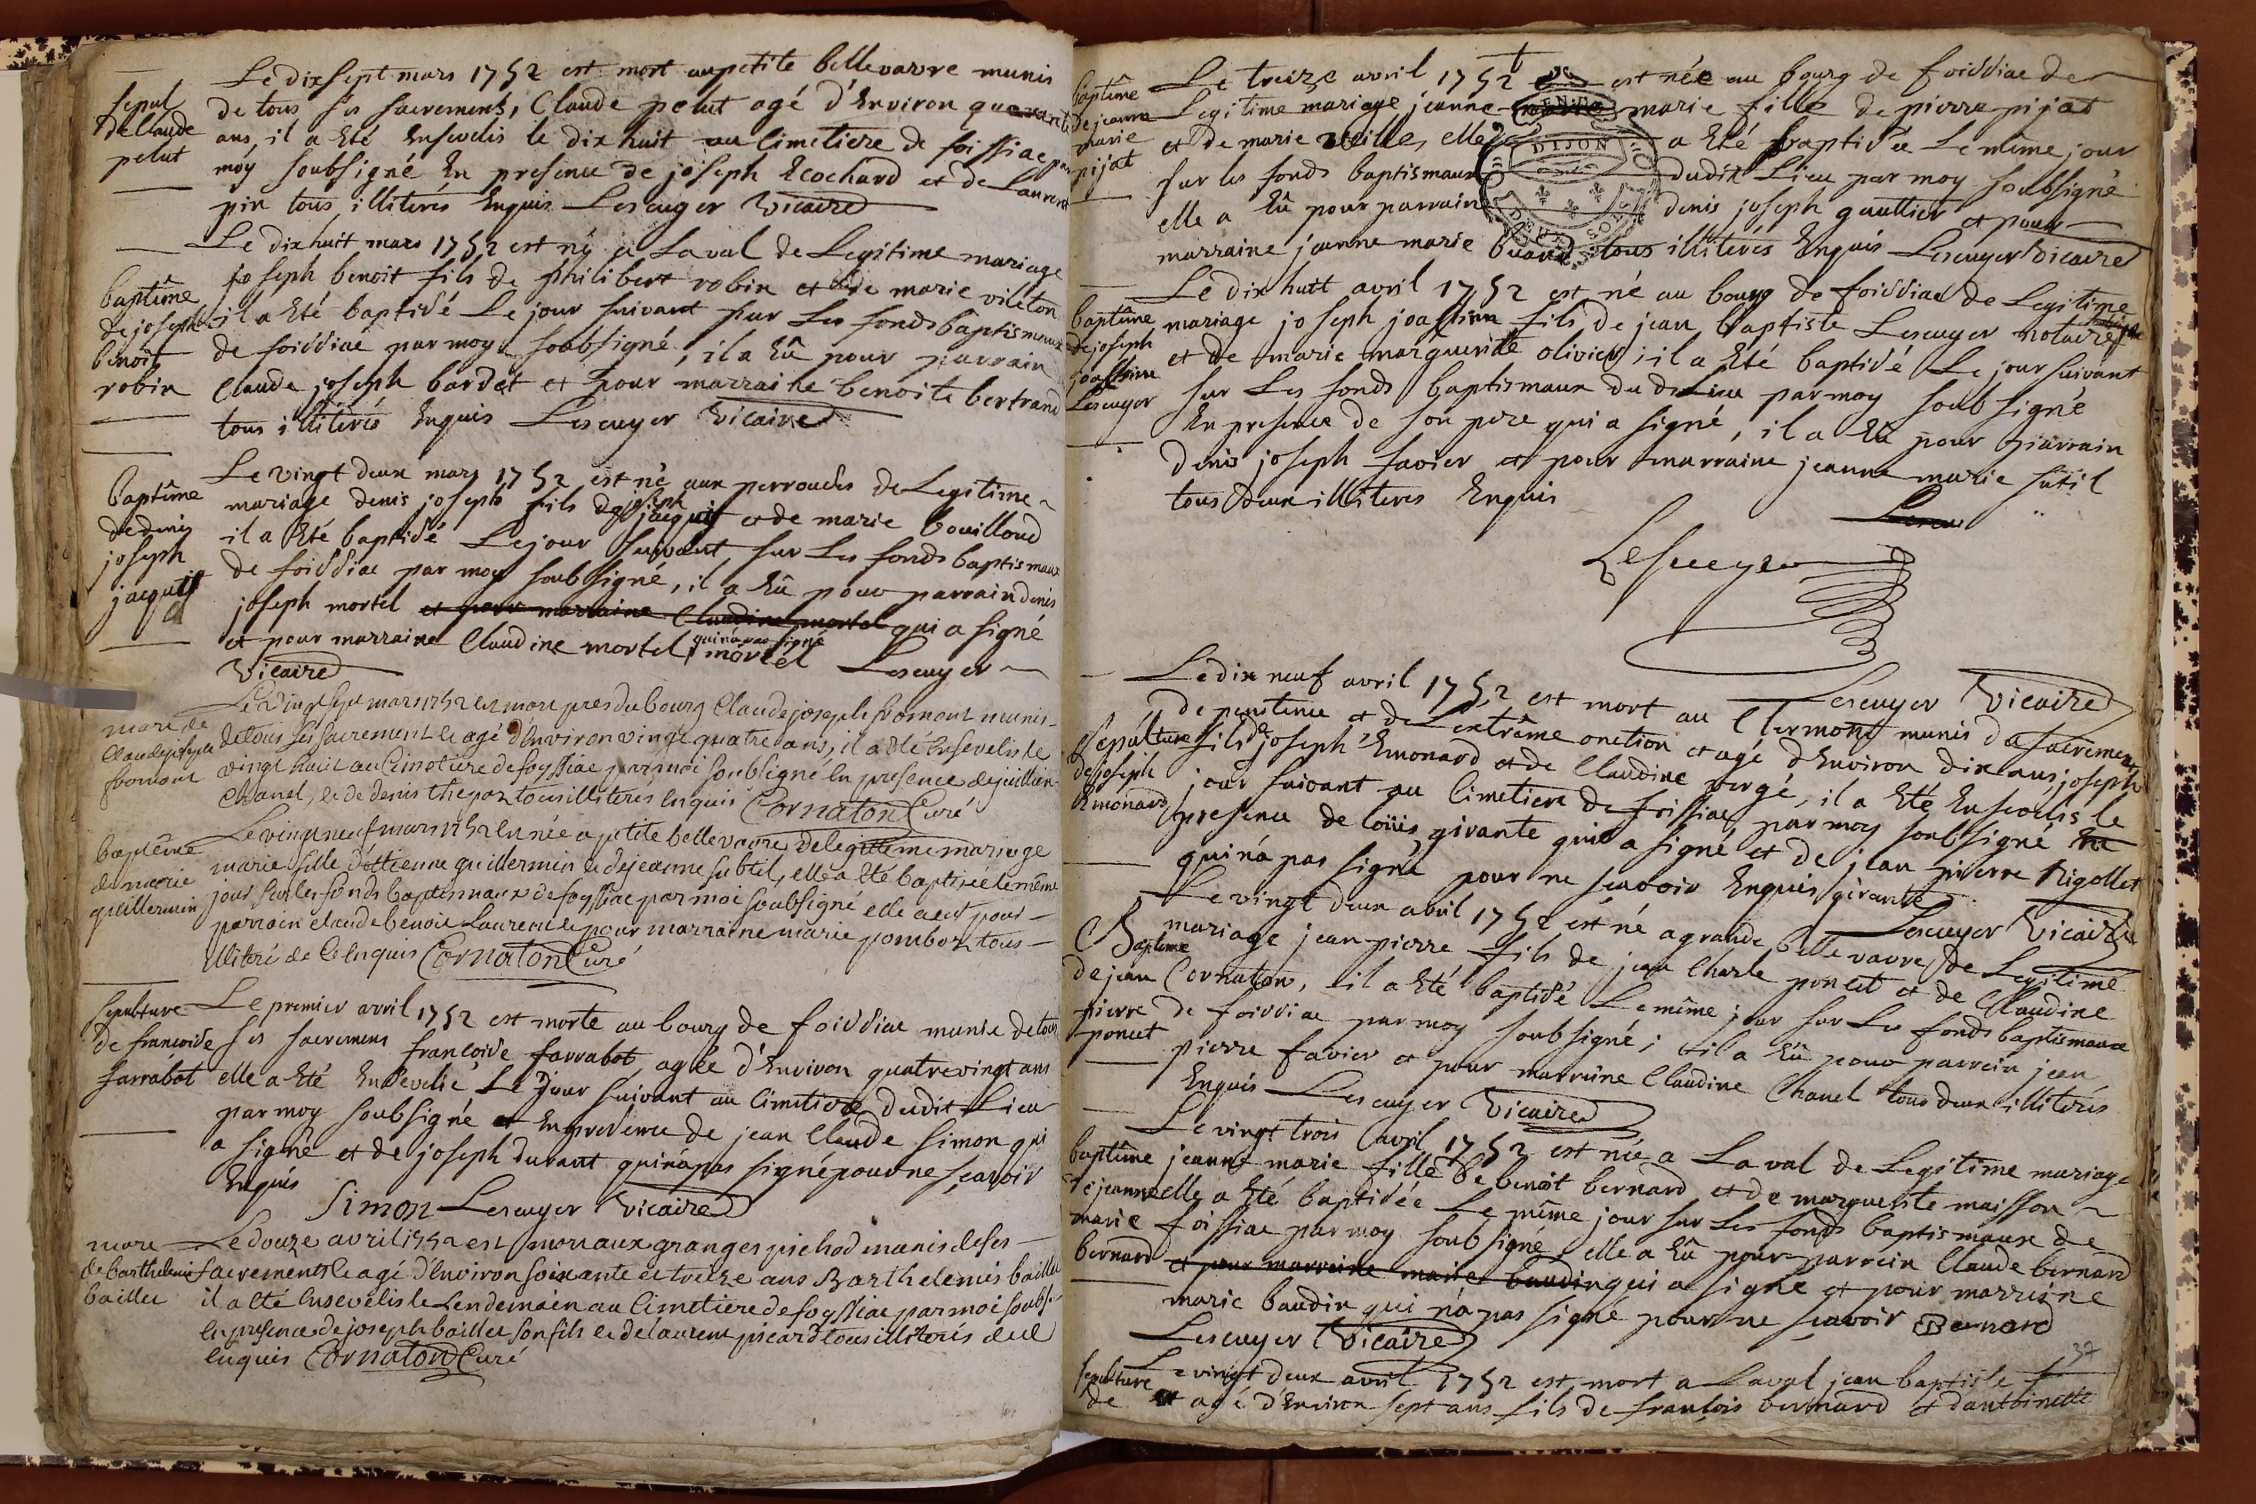 Le dix sept mars 1752 est mort au petite bellevavre munis
sepul
de tous ses sacrements, Claude pelut agé d'Environ quarante
de Claude
ans, il a Eté Ensevelis le dix huit au Cimetiere de foissiac par
pelut
moy soubsigné En presence de joseph Ecochard et de Laurent
pin tous illiterés Enquis Lescuyer Vicaire
Le dix huit mars 1752 est né a Laval de Legitime mariage
joseph benoit fils de philibert robin et de marie vileton
baptême
il a Eté baptisé Le jour suivant sur Les fonds baptismaux
de joseph
de foissiac par moy soubsigné, il a Eû pour parrain
benoit
Claude joseph bardet et pour marraine benoite bertrand
robin
tous illiterés Enquis Lescuyer Vicaire
Le vingt deux mars 1752 est né aux perroudes de Legitime
baptême
mariage denis joseph fils de joseph jaquit et de marie bouilloud
de denis
il a Eté baptisé Le jour suivant sur Les fonds baptismaux
joseph
de foissiac par moy soubsigné, il a Eû pour parrain denis
jaquit
joseph mortel et pour marraine Claudine mortel qui a signé
et pour marraine Claudine mortel qui n'a pas signé mortel Lescuyer
Vicaire
Le Vingt sept mars 1752 est mort pres du bourg Claude joseph fromont munis
mort de
de tous ses sacrements et agé d'Environ vingt quatre ans, il a été Ensevelis le
Claude joseph
vingt huit au Cimetiere de foyssiac par moi soubsigné En presence de juillien
fromont
Chanel, et de denis thepoz tous illiterés enquis Cornaton Curé
Le vingt neuf mars 1752 est née a petite bellevavre de legitime mariage
baptême
marie fille d'ettienne guillermin et de jeanne subtil, elle a Eté baptisée le même
de marie
jour sur les fonds baptismaux de foyssiac par moi soubsigné elle a eut pour
guillermin
parrain claude benoit Laurent et pour marraine marie pombon tous
illiteré de ce Enquis Cornaton Curé
Sepulture
Le premier avril 1752 est morte au bourg de foissiac munie de tous
de francoise
ses sacremens francoise farrabot, agée d'Environ quatre vingt ans
farrabot
elle a Eté Ensevelie Le jour suivant au Cimetiere dudit Lieu
par moy soubsigné et En presence de jean Claude simon qui
a signé et de joseph durant qui n'a pas signé pour ne sçavoir
Enquis
Simon Lescuyer Vicaire
mort
Le douze avril 1752 est mort aux granges pichod munis de ses
de barthelemis
sacrements et agé d'Environ soixante et treize ans Barthelemis baillet
baillet
il a été Ensevelis le Lendemain au Cimetiere de foyssiac par moi soubs.
En presence de joseph baillet son fils et de laurent picard tous illiterés de ce
enquis Cornaton Curé
Le treize avril 1752 est née au bourg de foissiac de
baptême
Legitime mariage jeanne marie fille de pierre pijat
de jeanne
et de marie veille, elle a Eté baptisée Le même jour
marie
sur les fonds baptismaux dudit Lieu par moy soubsigné
pijat
elle a Eû pour parrain denis joseph gaultier et pour
marraine jeanne marie buard tous illiterés Enquis Lescuyer Vicaire
DIJON
Le dix huit avril 1752 est né au bourg de foissiac de Legitime
baptême
mariage joseph joachim fils de jean baptiste Lescuyer notaire
de joseph
et de marie marguerite olivier; il a Eté baptisé Le jour suivant
joachim
sur Les fonds baptismaux du d Lieu par moy soubsigné
Lescuyer
En presence de son pere qui a signé, il a Eû pour parrain
denis joseph favier et pour marraine jeanne marie sutil
tous deux illiteres Enquis
Lescuyer
Lescuyer Vicaire
Le dix neuf avril 1752 est mort au Clermont munis du sacrement
de penitence et de Lextrême onction et agé d'Environ dix ans, joseph
Sepulture
fils de joseph Emonard et de Claudine vergé, il a Eté Ensevelis le
de joseph
jour suivant au Cimetiere de foissiac par moy soubsigné En
Emonard
presence de loüis girante qui a signé et de jean pierre Rigollet
qui n'a pas signé pour ne scavoir Enquis girante
Lescuyer Vicaire
Le vingt deux abril 1752 est né a grande bellevavre de Legitime
Bapteme
mariage jean pierre fils de jean Charle poncet et de Claudine
de jean
Cornaton, il a Eté baptisé Le même jour sur Les fonds baptismaux
pierre
de foissiac par moy soubsigné; il a Eû pour parrein jean
poncet
pierre favier et pour marreine Claudine Chanel tous deux illiterés
Enquis Lescuyer Vicaire
Le vingt trois avril 1752 est née a Laval de Legitime mariage
baptême
jeanne marie fille de benoit bernard et de marguerite maisson
de jeanne
elle a Eté baptisée Le même jour sur Les fonds baptismaux de
marie
foissiac par moy soubsigné, elle a Eû pour parrein Claude bernard
bernard
et pour marreine marie baudin qui a signé et pour marreine
marie baudin qui n'a pas signé pour ne scavoir Bernard
Lescuyer Vicaire
37
Sepulture
Le vingt deux avril 1752 est mort a Laval jean baptiste
de
et agé d'Environ sept ans fils de françois bernard et dantoinette